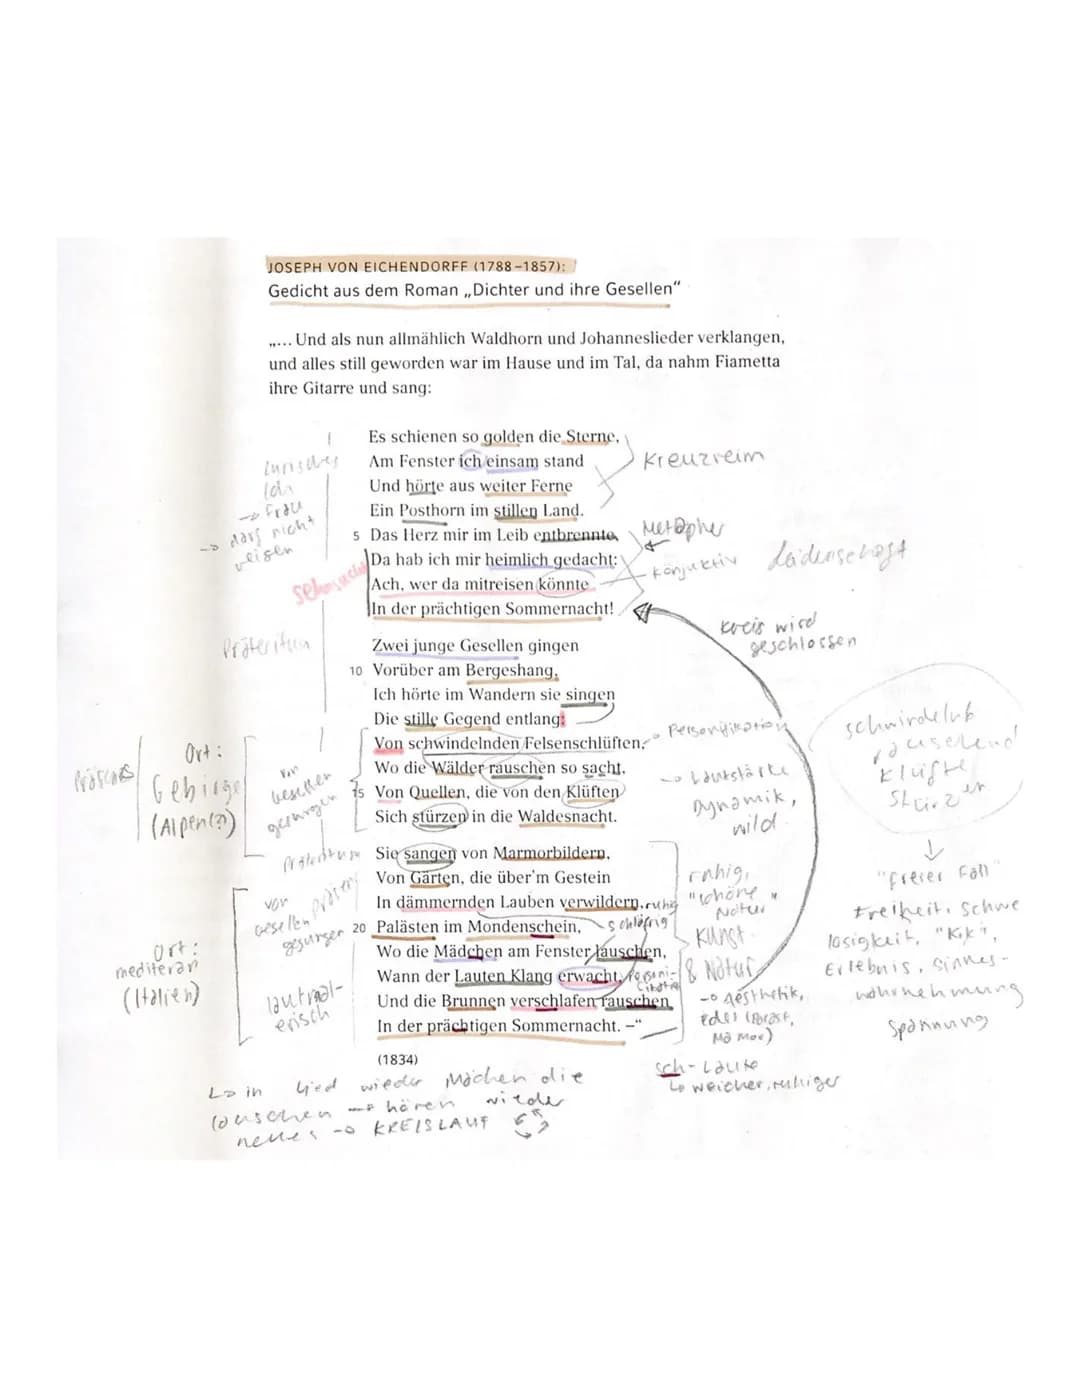 JOSEPH VON EICHENDORFF (1788–1857):
Gedicht aus dem Roman „Dichter und ihre Gesellen“
„... Und als nun allmählich Waldhorn und Johanneslieder verklangen,
und alles still geworden war im Hause und im Tal, da nahm Fiametta
ihre Gitarre und sang:
Es schienen so golden die Sterne,
Am Fenster ich einsam stand
Und hörte aus weiter Ferne
Ein Posthorn im stillen Land.
5 Das Herz mir im Leib entbrennte,
Da hab ich mir heimlich gedacht:
Ach, wer da mitreisen könnte
In der prächtigen Sommernacht!
Zwei junge Gesellen gingen
10 Vorüber am Bergeshang,
Ich hörte im Wandern sie singen
Die stille Gegend entlang:
Von schwindelnden Felsenschlüften,
Wo die Wälder rauschen so sacht,
15 Von Quellen, die von den Klüften
Sich stürzen in die Waldesnacht.
Sie sangen von Marmorbildern,
Von Gärten, die über'm Gestein
In dämmernden Lauben verwildern,
20 Palästen im Mondenschein,
Wo die Mädchen am Fenster lauschen,
Wann der Lauten Klang erwacht,
Und die Brunnen verschlafen rauschen
In der prächtigen Sommernacht. –“
(1834)
Lyrisches
Ich
→ Frau
→ darf nicht
reisen
sehnsucht
Präteritum
Kreuzreim
Metapher
Konjuktiv
Leidenschaft
Kreis wird
geschlossen
Präsens
Ort:
Gebirge
(Alpen(?)
von
Gesellen
gesungen
Personifikation
→ Lautstärke
Dynamik,
wild
schwindelnd
rauschend
Klüfte
Stürzen
↓
"freier Fall"
Freiheit, Schwe
losigkeit, "Kik",
Erlebnis, Sinnes-
wahrnehmung
Spannung
Präteritum
Präsens
von
Gesellen
gesungen
Ort:
mediteran
(Italien)
lautmal-
erisch
ruhig
schläfrig
Personi-
ruhig,
"schöne
Natur"
Kunst
& Natur
→ Aesthetik,
edel (Palast,
Mamor)
sch-Laute
↳ weicher, ruhiger
↳ in Lied wieder Mädchen die
lauschen → hören wieder
neues → KREISLAUF